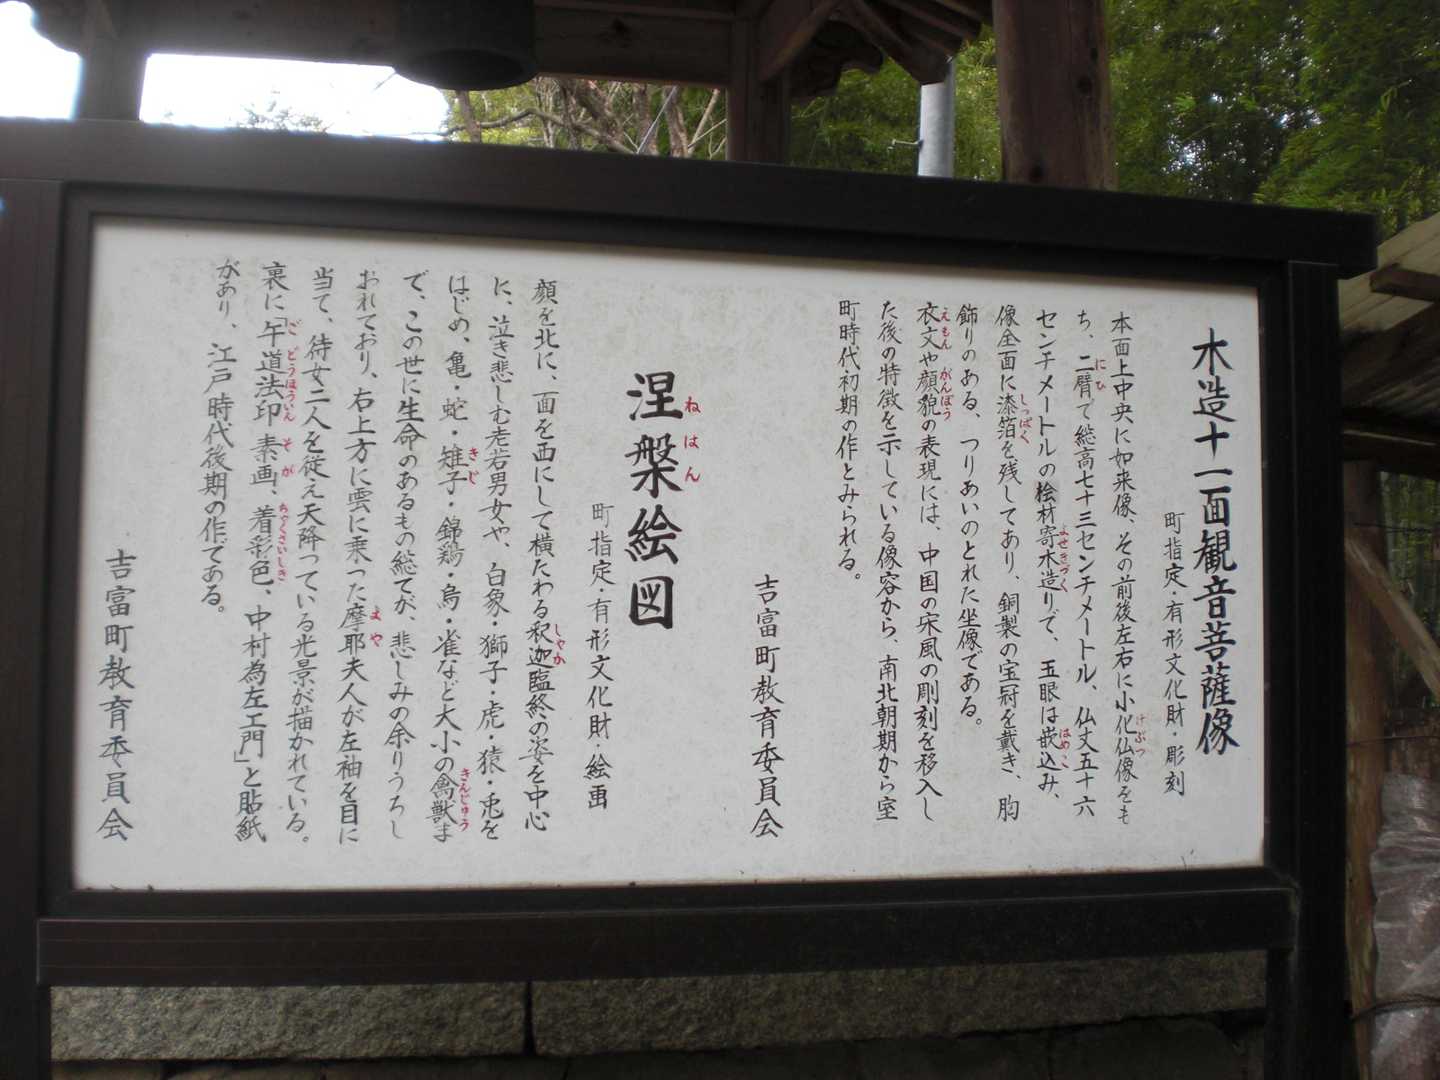 木造十一面観音菩薩像
町指定・有形文化財・彫刻
本面上中央に如来像、その前後左右に小化仏像をも
ち、二臂で総高七十三センチメートル、仏丈五十六
センチメートルの桧材寄木造りで、五眼は嵌込み、
像全面に漆箔を残してあり、銅製の宝冠を戴き、胸
飾りのある、つりあいのとれた坐像である。
衣文や顔貌の表現には、中国の宋風の彫刻を移入し
た後の特徴を示している像容から、南北朝期から室
町時代初期の作とみられる。
吉富町教育委員会
涅槃絵図
町指定・有形文化財・絵画
顔を北に、面を西にして横たわる釈迦臨終の姿を中心
に、泣き悲しむ老若男女や、白象・獅子・虎・猿・兎を
はじめ、亀・蛇・雉子・錦鶏・烏・雀など大小の禽獣ま
で、この世に生命のあるもの総てが、悲しみの余りうちし
おれており、右上方に雲に乗った摩耶夫人が左袖を目に
当て、待女二人を従え天降っている光景が描かれている。
裏に「午道法印素画、着彩色、中村為左エ門」と貼紙
があり、江戸時代後期の作である。
吉富町教育委員会